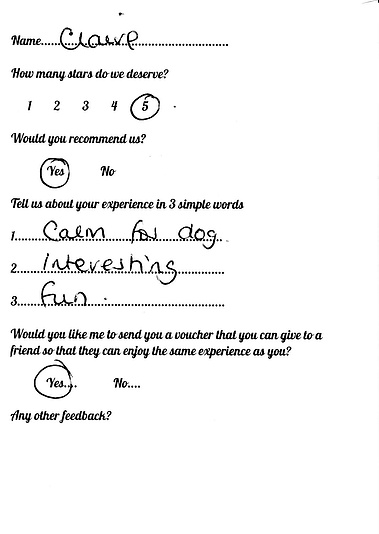 Name.....Claire.....
How many stars do we deserve?
1 2 3 4 5
Would you recommend us?
Yes No
Tell us about your experience in 3 simple words
1......Calm for dog..
2......Interesting......
3......fun......
Would you like me to send you a voucher that you can give to a
friend so that they can enjoy the same experience as you?
Yes.... No....
Any other feedback?